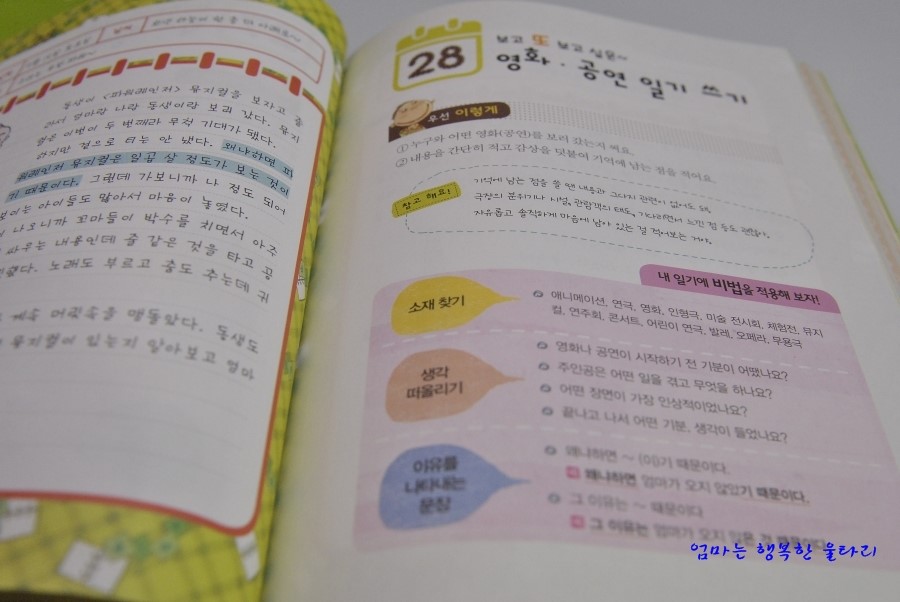 동생이 <파워레인저> 뮤지컬을 보자고 졸
라서 엄마랑 나랑 동생이랑 보러 갔다. 뮤지
컬은 이번이 두 번째라 무척 기대가 됐다.
하지만 겉으로 티는 안 냈다. 왜냐하면 파
워레인저 뮤지컬은 일곱 살 정도가 보는 것이
기 때문이다. 그런데 가보니까 나 정도 되어
보이는 아이들도 많아서 마음이 놓였다.
나오니까 꼬마들이 박수를 치면서 아주
싸우는 내용인데 줄 같은 것을 타고 공
노래도 부르고 춤도 추는데 귀
계속 머릿속을 맴돌았다. 동생도
뮤지컬이 있는지 알아보고 엄마
28
보고 또 보고 싶은~
영화 · 공연 일기 쓰기
우선 이렇게
① 누구와 어떤 영화(공연)를 보러 갔는지 써요.
② 내용을 간단히 적고 감상을 덧붙여 기억에 남는 점을 적어요.
참고 해요!
기억에 남는 점을 쓸 땐 내용과 그다지 관련이 없어도 돼.
극장의 분위기나 시설, 관람객의 태도, 기다리면서 느낀 점 등도 괜찮아.
자유롭고 솔직하게 마음에 남아 있는 걸 적어보는 거야.
내 일기에 비법을 적용해 보자!
소재 찾기
애니메이션, 연극, 영화, 인형극, 미술 전시회, 체험전, 뮤지
컬, 연주회, 콘서트, 어린이 연극, 발레, 오페라, 무용극
생각
떠올리기
영화나 공연이 시작하기 전 기분이 어땠나요?
주인공은 어떤 일을 겪고 무엇을 하나요?
어떤 장면이 가장 인상적이었나요?
끝나고 나서 어떤 기분, 생각이 들었나요?
이유를
나타내는
문장
왜냐하면 ~ (이)기 때문이다.
왜냐하면 엄마가 오지 않았기 때문이다.
그 이유는 ~ 때문이다
그 이유는 엄마가 오지 않은 것 때문이다
엄마는 행복한 울타리